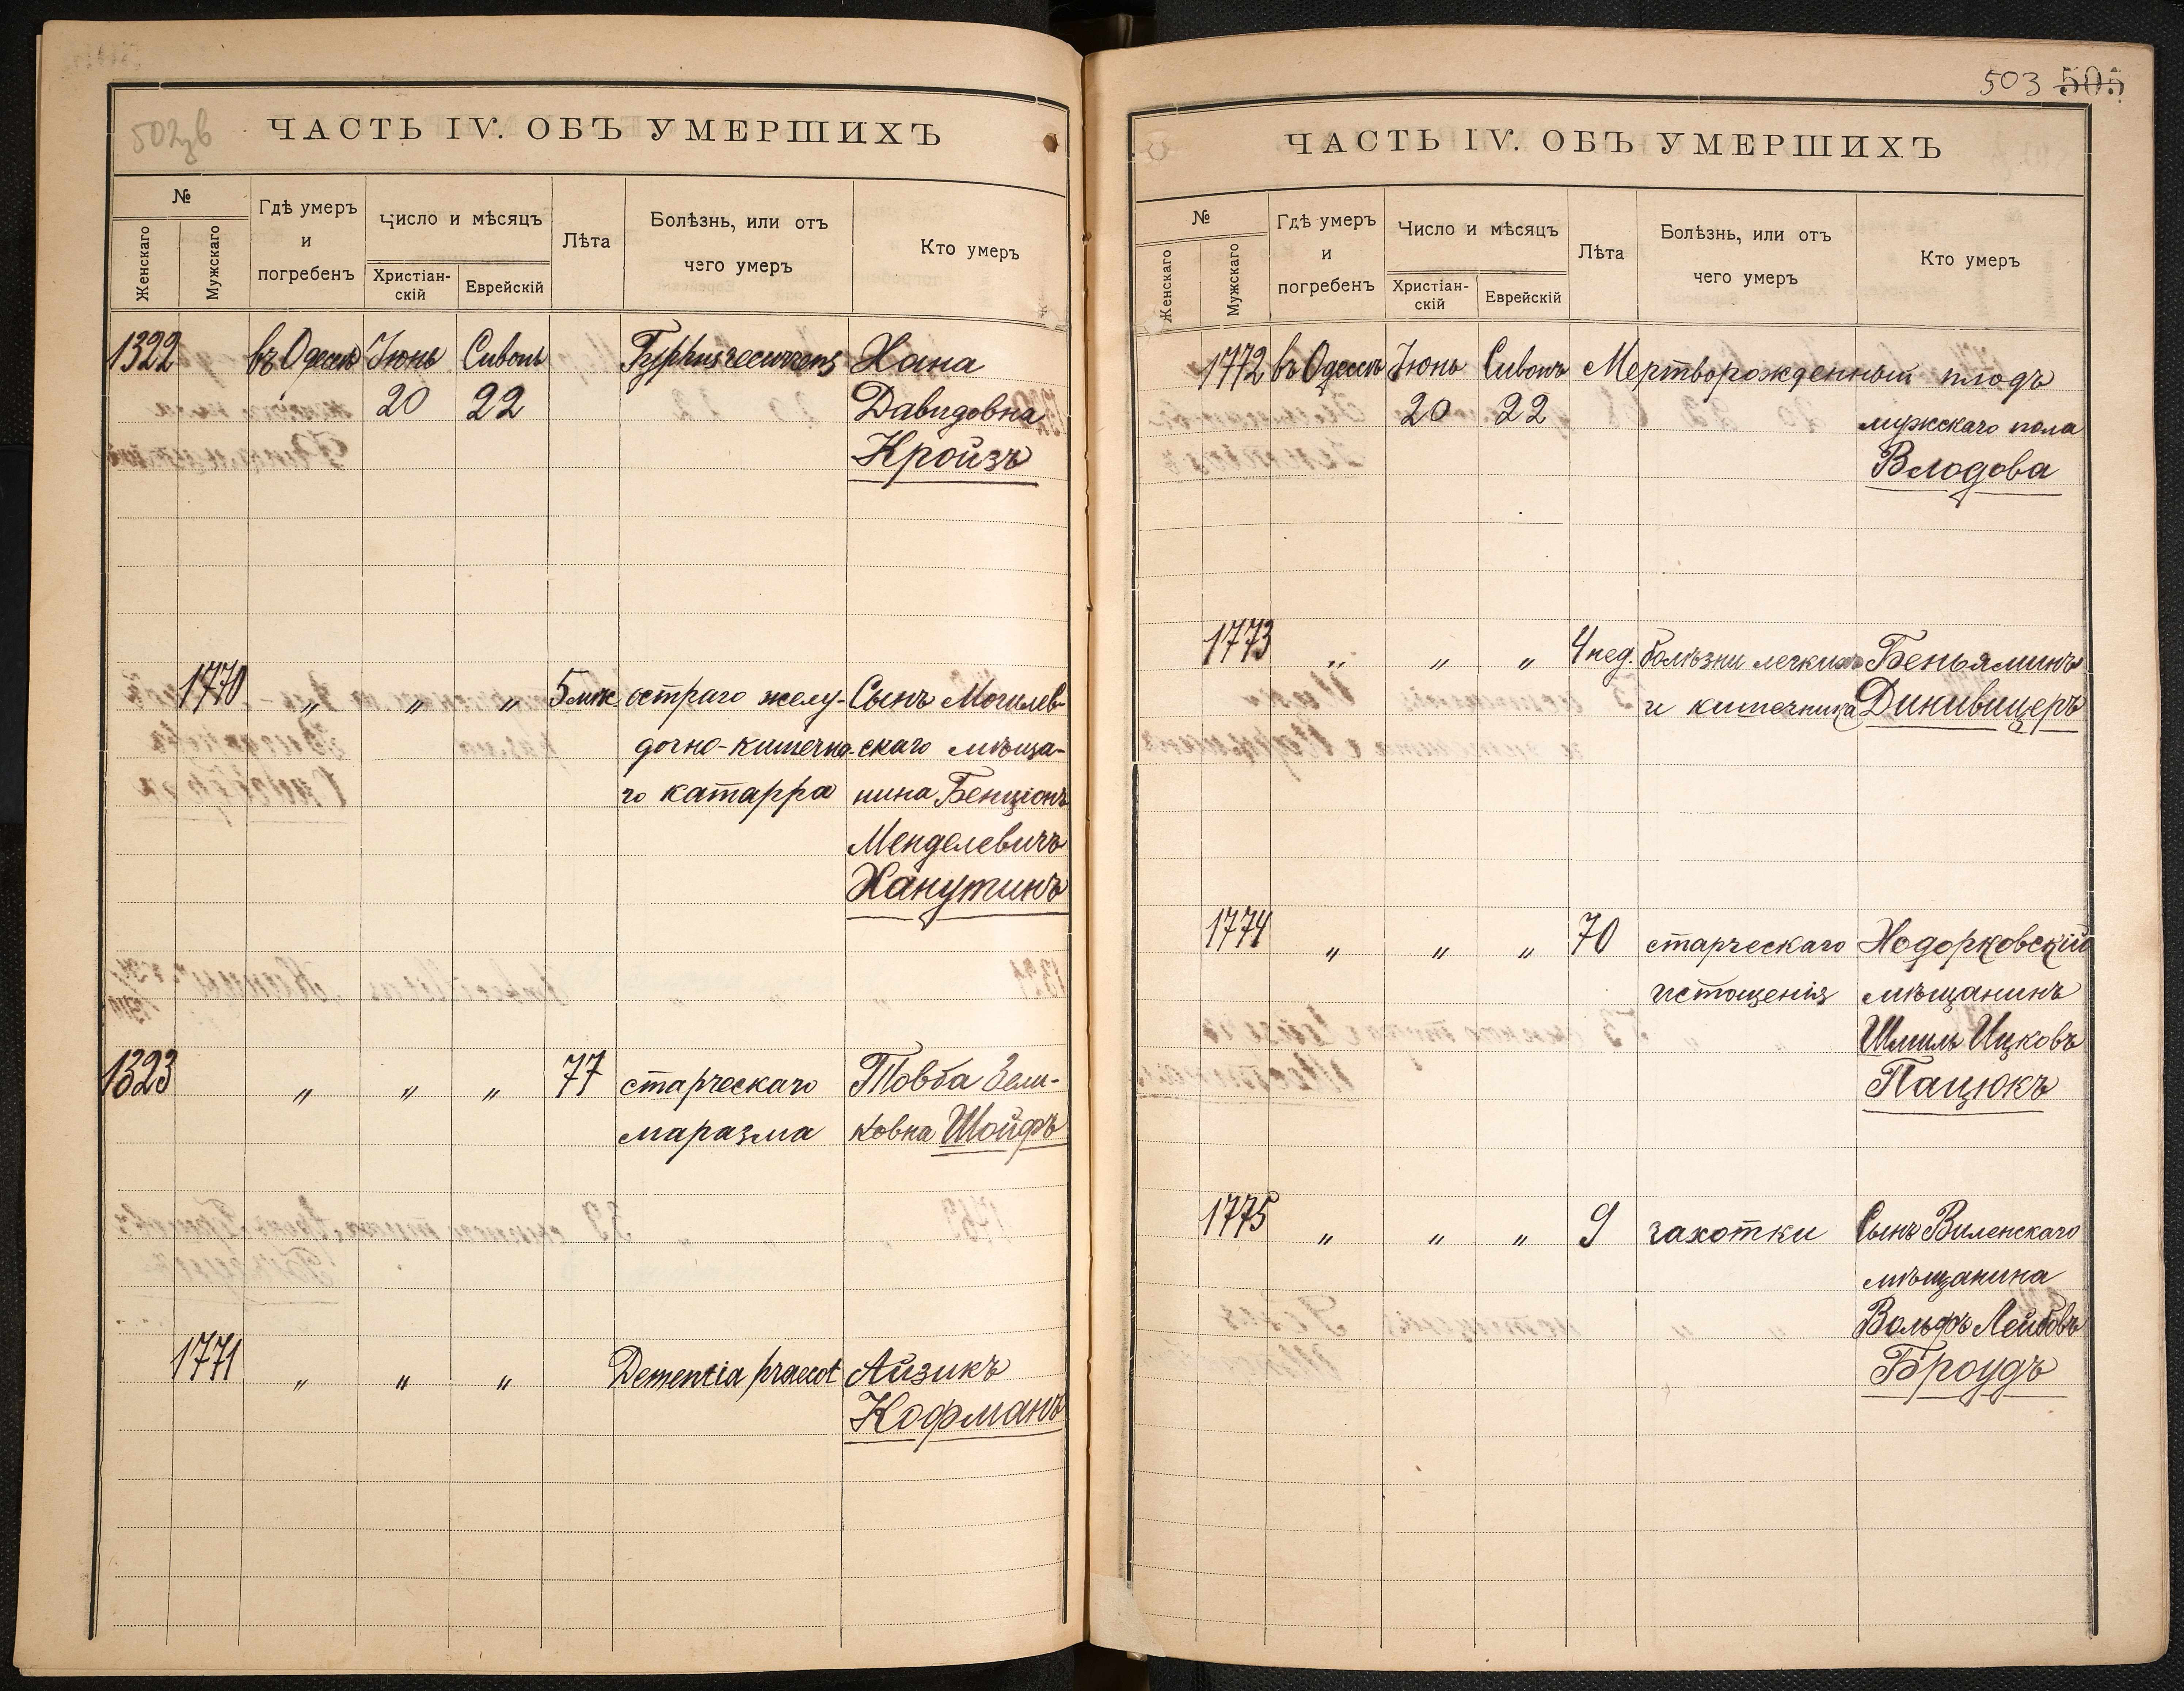 ЧАСТЬ IV. ОБЪ УМЕРШИХЪ
№
Женскаго
Мужскаго
Гдѣ умеръ
и
погребенъ
Число и мѣсяцъ
Христіан-
скій
Еврейскій
Лѣта
Болѣзнь, или отъ
чего умеръ
Кто умеръ
1322 въ Одессѣ Іюнь Сивонъ Typhus recurrens Хана
20 22 Давидовна
Кройзъ
1770 „ „ „ 5 мѣс остраго желу- Сынъ Могилев-
дочно-кишечна- скаго мѣща-
го катарра нина Бенціонъ
Менделевичъ
Ханутинъ
1323 „ „ „ 77 старческаго Товба Зели-
маразма ковна Шойфъ
1771 „ „ „ Dementia praecot Айзикъ
Кофманъ
503 505
ЧАСТЬ IV. ОБЪ УМЕРШИХЪ
№
Женскаго
Мужскаго
Гдѣ умеръ
и
погребенъ
Число и мѣсяцъ
Христіан-
скій
Еврейскій
Лѣта
Болѣзнь, или отъ
чего умеръ
Кто умеръ
1772 въ Одессѣ Іюнь Сивонъ Мертворожденный плодъ
20 22 мужскаго пола
Влодова
1773 „ „ „ 4 нед. болѣзни легкихъ Беньяминъ
и кишечника Динивицеръ
1774 „ „ „ 70 старческаго Ходорковскій
истощенія мѣщанинъ
Шмиль Ицковъ
Пацюкъ
1775 „ „ „ 9 чахотки Сынъ Виленскаго
мѣщанина
Вольфъ Лейбовъ
Броудъ